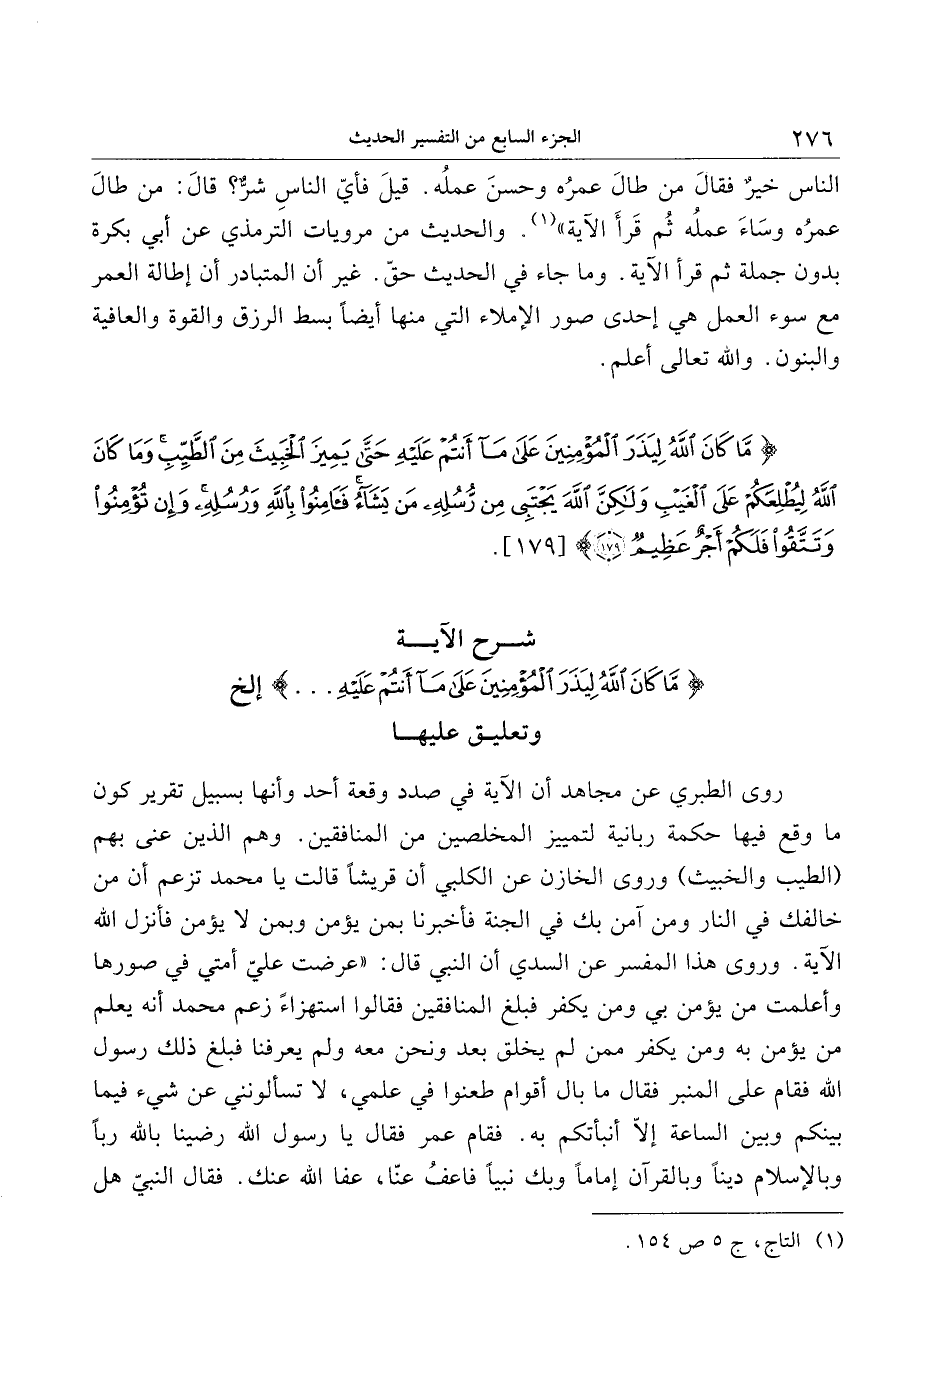 ٢٧٦ الجزء السابع من التفسير الحديث
الناس خيرٌ فقالَ من طالَ عمرُه وحسنَ عملُه. قيلَ فأيّ الناسِ شرٌّ؟ قالَ: من طالَ
عمرُه وسَاءَ عملُه ثُم قَرأَ الآية»(١). والحديث من مرويات الترمذي عن أبي بكرة
بدون جملة ثم قرأ الآية. وما جاء في الحديث حقّ. غير أن المتبادر أن إطالة العمر
مع سوء العمل هي إحدى صور الإملاء التي منها أيضاً بسط الرزق والقوة والعافية
والبنون. والله تعالى أعلم.
﴿ مَّا كَانَ ٱللَّهُ لِيَذَرَ ٱلْمُؤْمِنِينَ عَلَىٰ مَآ أَنتُمْ عَلَيْهِ حَتَّىٰ يَمِيزَ ٱلْخَبِيثَ مِنَ ٱلطَّيِّبِ ۗ وَمَا كَانَ
ٱللَّهُ لِيُطْلِعَكُمْ عَلَى ٱلْغَيْبِ وَلَٰكِنَّ ٱللَّهَ يَجْتَبِى مِن رُّسُلِهِۦ مَن يَشَآءُ ۖ فَـَٔامِنُوا۟ بِٱللَّهِ وَرُسُلِهِۦ ۚ وَإِن تُؤْمِنُوا۟
وَتَتَّقُوا۟ فَلَكُمْ أَجْرٌ عَظِيمٌ ١٧٩ ﴾ [١٧٩].
شـــرح الآيـــة
﴿ مَّا كَانَ ٱللَّهُ لِيَذَرَ ٱلْمُؤْمِنِينَ عَلَىٰ مَآ أَنتُمْ عَلَيْهِ . . . ﴾ إلخ
وتعليـق عليهـا
روى الطبري عن مجاهد أن الآية في صدد وقعة أحد وأنها بسبيل تقرير كون
ما وقع فيها حكمة ربانية لتمييز المخلصين من المنافقين. وهم الذين عنى بهم
(الطيب والخبيث) وروى الخازن عن الكلبي أن قريشاً قالت يا محمد تزعم أن من
خالفك في النار ومن آمن بك في الجنة فأخبرنا بمن يؤمن وبمن لا يؤمن فأنزل الله
الآية. وروى هذا المفسر عن السدي أن النبي قال: «عرضت عليّ أمتي في صورها
وأعلمت من يؤمن بي ومن يكفر فبلغ المنافقين فقالوا استهزاءً زعم محمد أنه يعلم
من يؤمن به ومن يكفر ممن لم يخلق بعد ونحن معه ولم يعرفنا فبلغ ذلك رسول
الله فقام على المنبر فقال ما بال أقوام طعنوا في علمي، لا تسألونني عن شيء فيما
بينكم وبين الساعة إلاّ أنبأتكم به. فقام عمر فقال يا رسول الله رضينا بالله رباً
وبالإسلام ديناً وبالقرآن إماماً وبك نبياً فاعفُ عنّا، عفا الله عنك. فقال النبيّ هل
(١) التاج، ج ٥ ص ١٥٤.